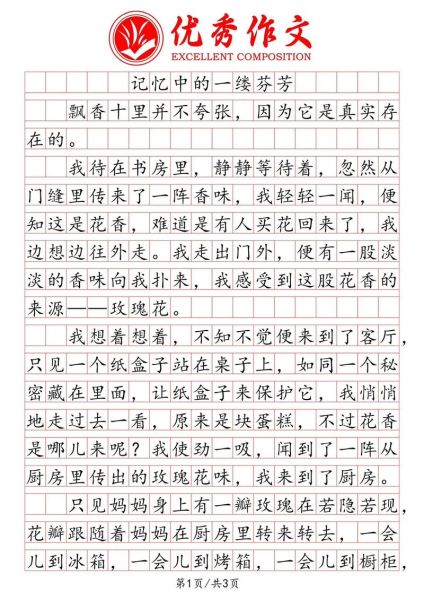 优秀作文
EXCELLENT COMPOSITION
记忆中的一缕芬芳
飘香十里并不夸张，因为它是真实存
在的。
我待在书房里，静静等待着，忽然从
门缝里传来了一阵香味，我轻轻一闻，便
知这是花香，难道是有人买花回来了，我
边想边往外走。我走出门外，便有一股淡
淡的香味向我扑来，我感受到这股花香的
来源——玫瑰花。
我想着想着，不知不觉便来到了客厅，
只见一个纸盒子站在桌子上，如同一个秘
密藏在里面，让纸盒子来保护它，我悄悄
地走过去一看，原来是块蛋糕，不过花香
是哪儿来呢？我使劲一吸，闻到了一阵从
厨房里传出的玫瑰花味，我来到了厨房。
只见妈妈身上有一瓣玫瑰在若隐若现，
花瓣跟随着妈妈在厨房里转来转去，一会
儿到冰箱，一会儿到烤箱，一会儿到橱柜，
第1页/共3页